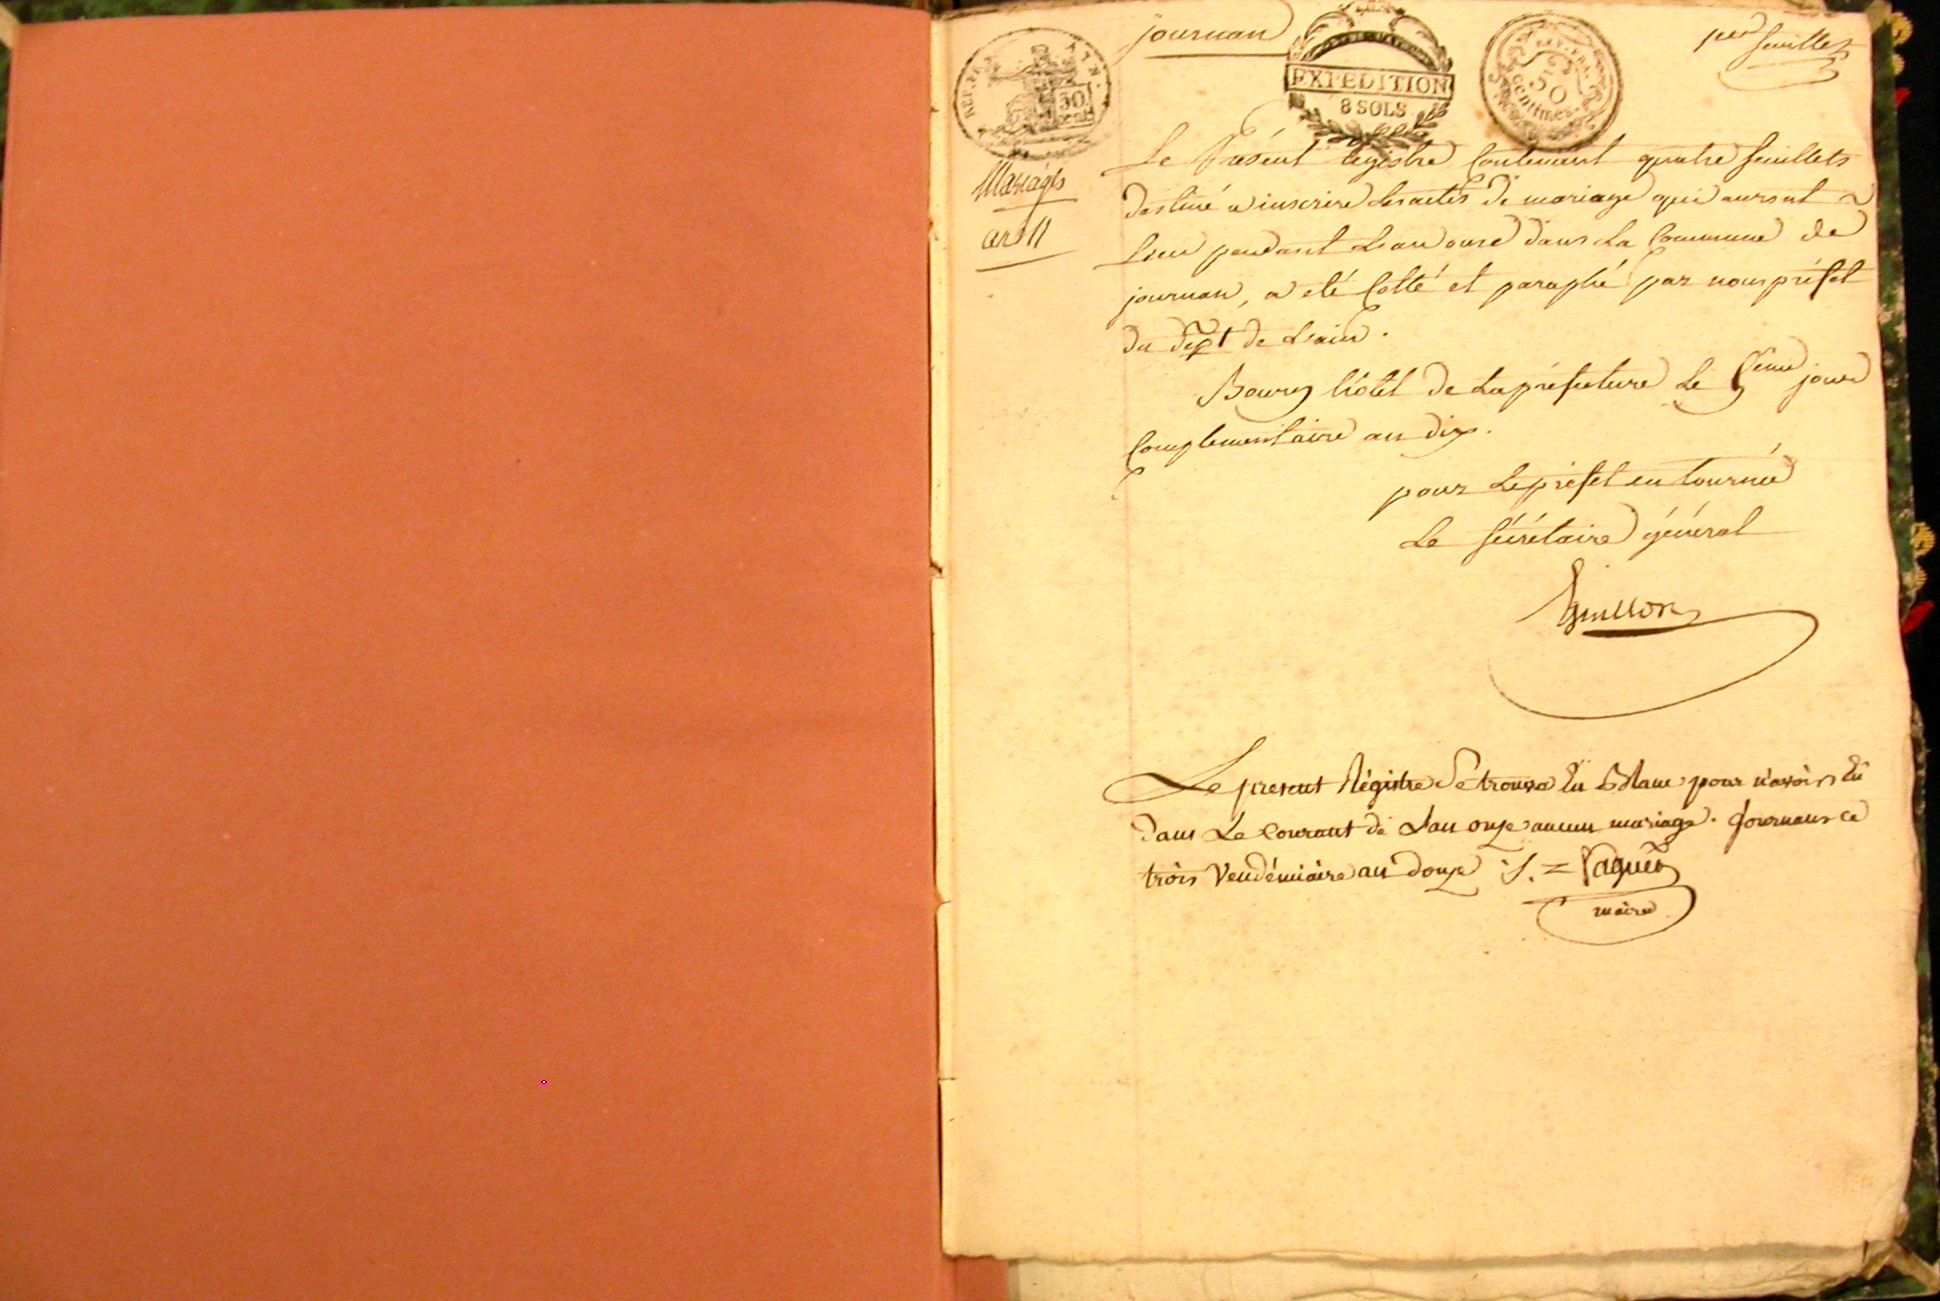 journan
per feuillet
REP. FRA.
AIN.
50
cent.
EXPEDITION
8 SOLS
REP. FRA.
50
centimes
Mariages
an 11
Le Présent registre Contenant quatre feuillets
destiné a inscrire Les actes de mariage qui auront
Lieu pendant L'an onze dans La Commune de
journan, a été Cotté et paraphé par nous préfet
du dept de L'ain.
Bourg hôtel de La préfecture Le 5eme jour
Complementaire an dix.
pour Le préfet en tournée
Le sécrétaire général
Le present Régistre Se trouve En Blanc pour n'avoir Eû
dans Le Courant de L'an onze aucun mariage. Journans ce
trois Vendémiaire an douze
maire